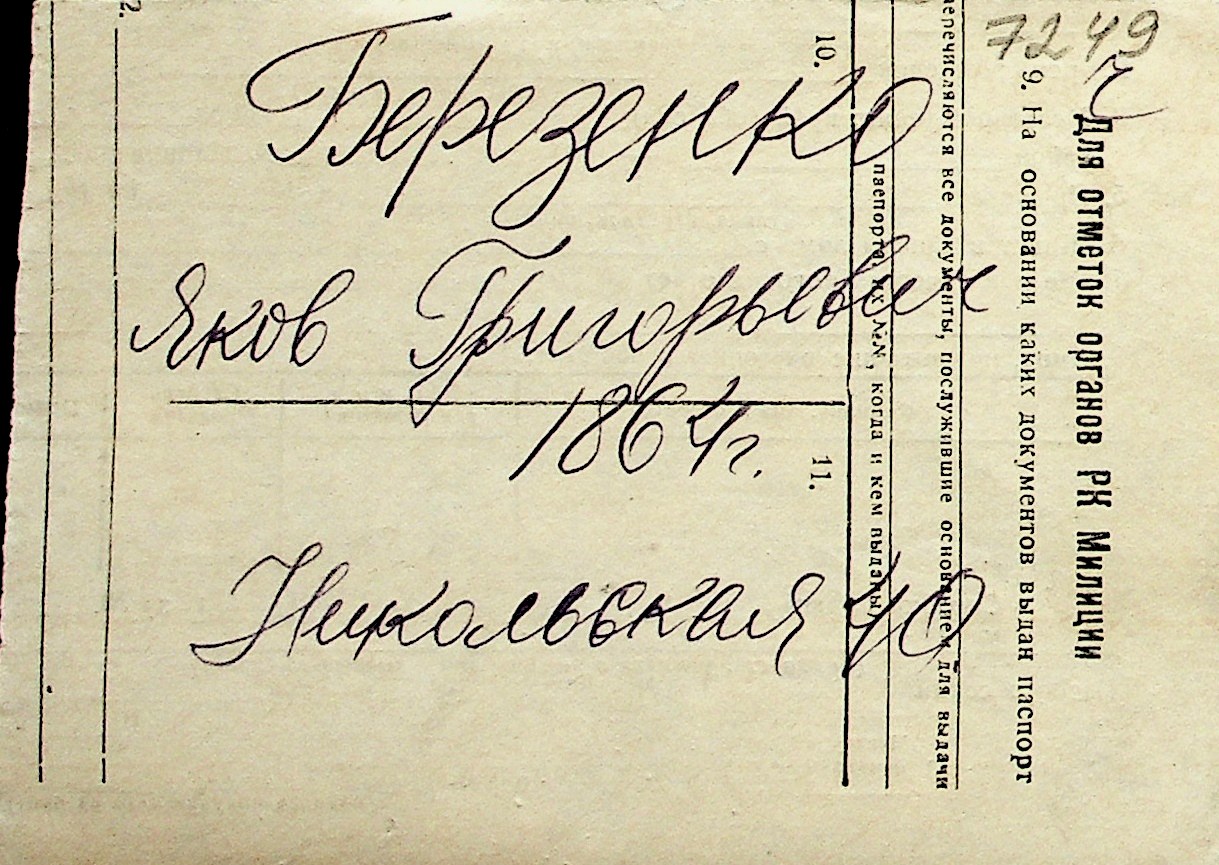 7249
Березенко
Яков Григорьевич
1864г.
Никольская 40
Для отметок органов РК Милиции
9. На основании каких документов выдан паспорт
перечисляются все документы, послужившие основанием для выдачи
паспорта, их №№, когда и кем выданы)
10.
11.
2.